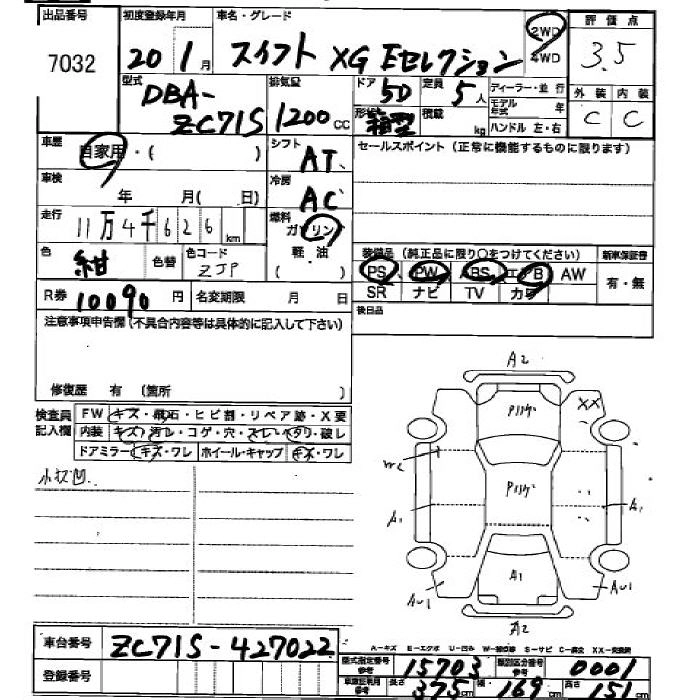 出品番号 初度登録年月 車名・グレード 評価点
7032 20 1月 スイフト XG Eセレクション 2WD 4WD 3.5
型式 排気量 ドア 定員 ディーラー・並行 外装 内装
DBA-ZC71S 1200cc 5D 5人 モデル年式 年 C C
形状 箱型 積載 kg ハンドル 左・右
車歴 自家用・( ) シフト AT セールスポイント(正常に機能するものに限ります)
車検 年 月( 日) 冷房 AC
走行 11万4千626km 燃料 ガソリン
色 紺 色替 色コード ZJP 軽・油 ( )
装備品(純正品に限り○をつけてください) 新車保証書
PS PW ABS エアB AW 有・無
SR ナビ TV カワ
R券 10090円 名変期限 月 日 後日品
注意事項申告欄(不具合内容等は具体的に記入して下さい)
修復歴 有 (箇所 )
検査員記入欄 FW キズ・飛石・ヒビ割・リペア跡・X要
内装 キズ・汚レ・コゲ・穴・スレ・ヘタリ・破レ
ドアミラー キズ・ワレ ホイール・キャップ キズ・ワレ
小キズ凹
A2
XX
A1 A1
A1
AU1 AU1
A2
車台番号 ZC71S-427022
A-キズ E-エクボ U-凹み S-サビ
登録番号 型式指定番号 参考 15703 類別区分番号 参考 0001
375cm 幅 169cm 高さ 151cm